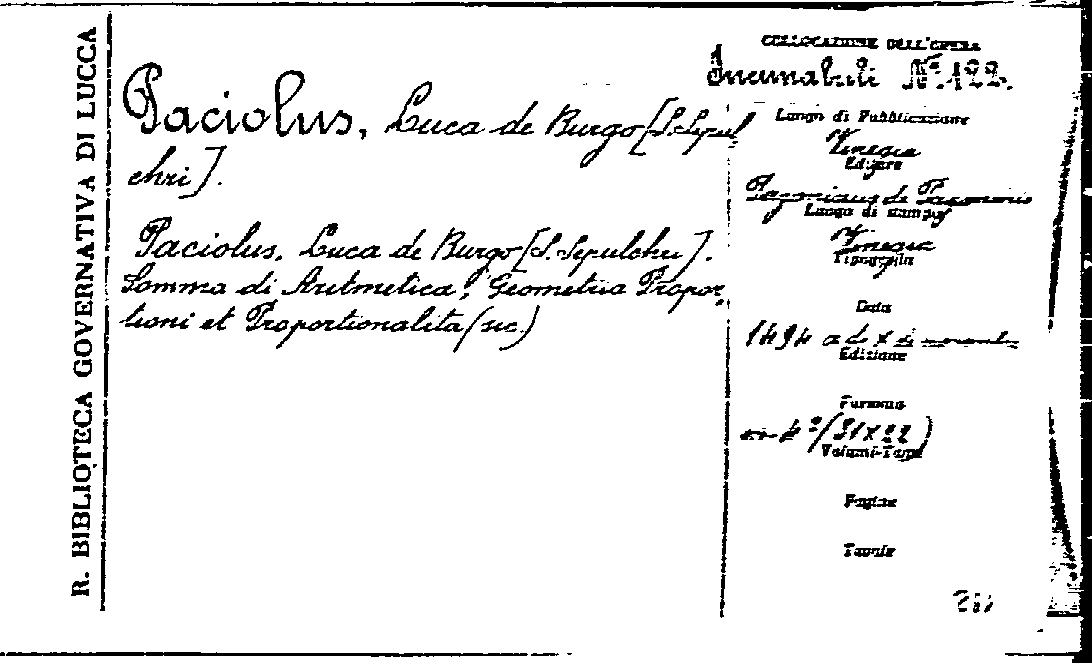 R. BIBLIOTECA GOVERNATIVA DI LUCCA
Paciolus, Luca de Burgo [S. Sepul
chri].
Paciolus, Luca de Burgo [S. Sepulchri].
Somma di Aritmetica, Geometria Propor,
tioni et Proportionalita (sic.)
COLLOCAZIONE DELL'OPERA
Incunabuli Nº. 122.
Luogo di Pubblicazione
Venezia
Editore
Paganinus de Paganinis
Luogo di stampa
Venezia
Tipografia
Data
1494 a dì X di novembre
Edizione
Formato
in 4º (31x22)
Volumi-Tomi
Pagine
Tavole